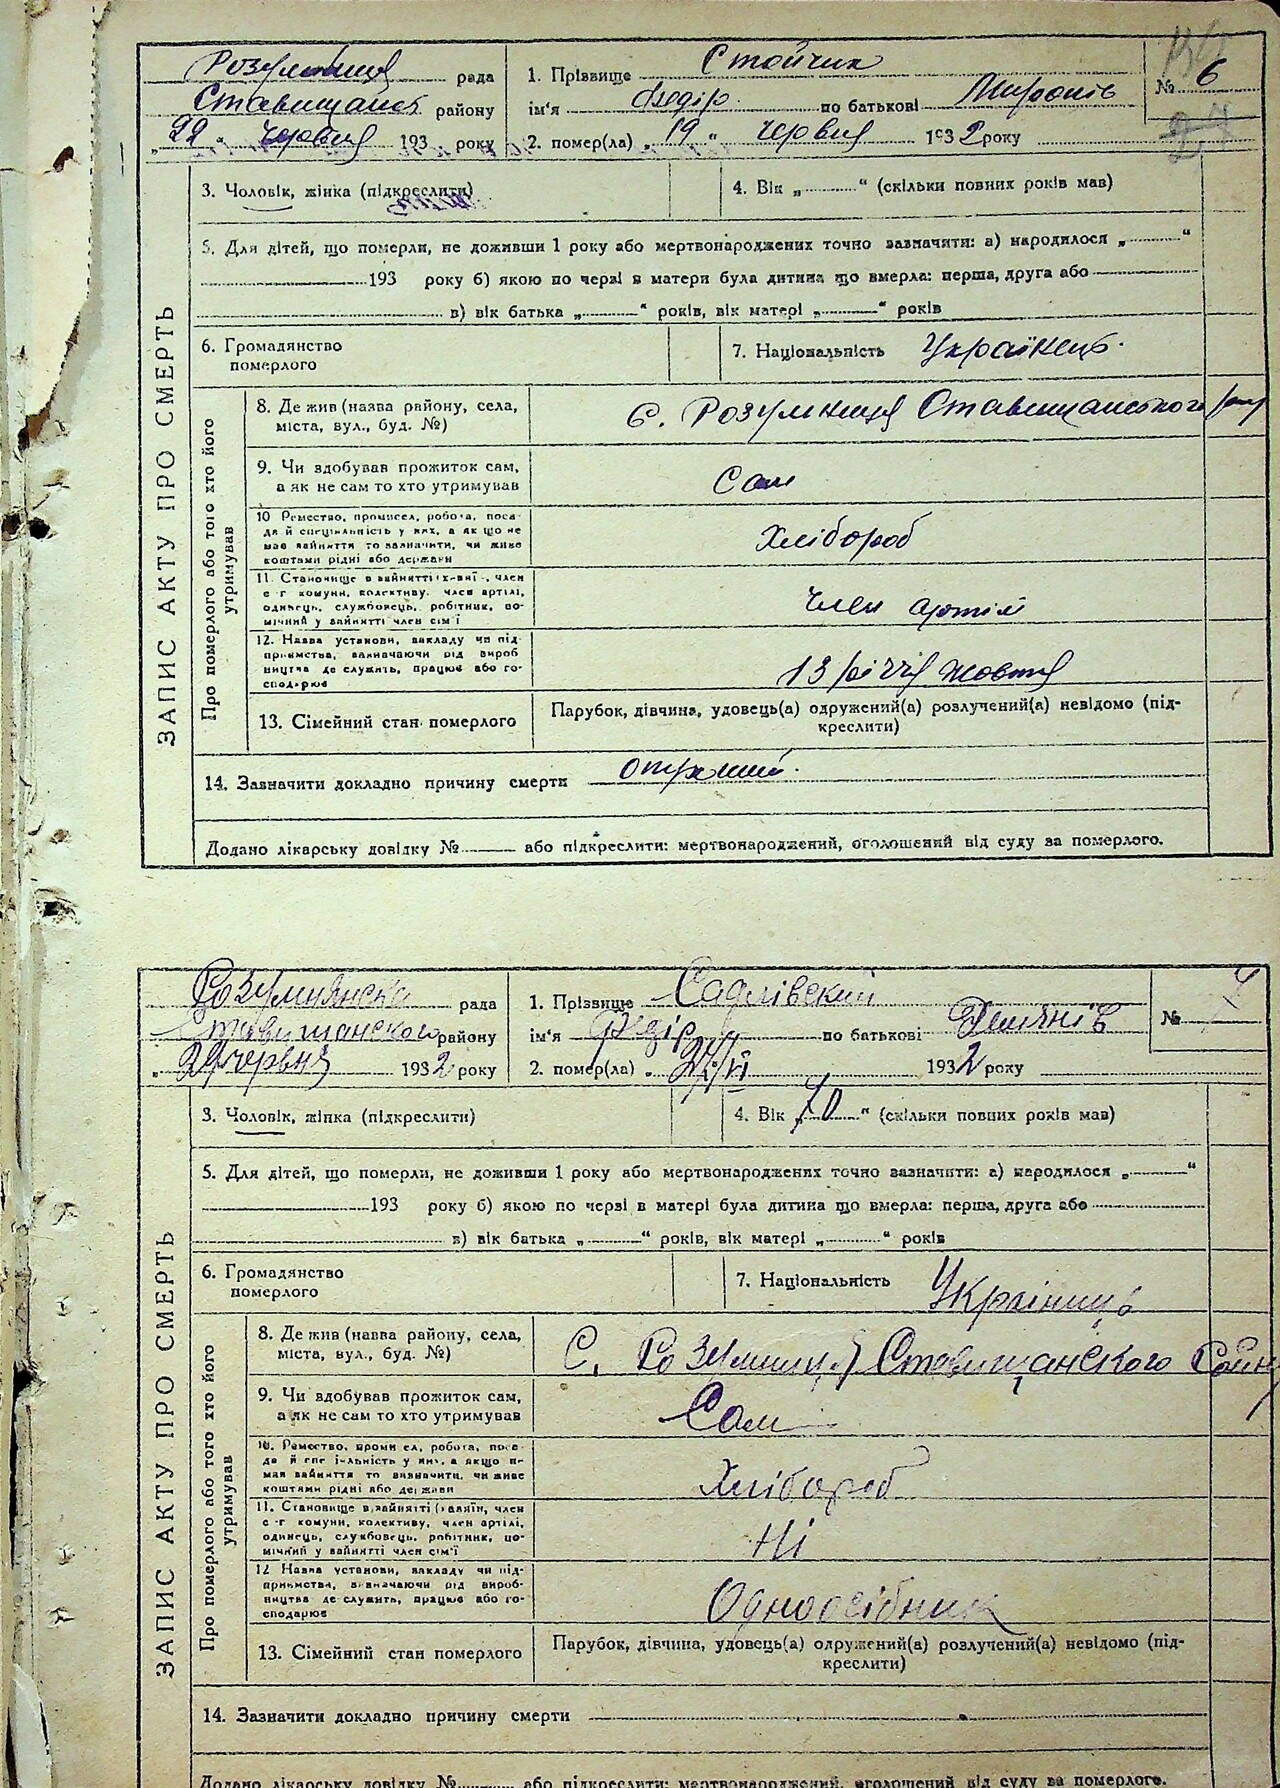 Розумниця рада
Ставищанск району
„22 “ червня 193 року
1. Прізвище Стойчик
ім'я Федір по батькові Миронів
2. помер(ла) „ 19 “ червня 1932 року
№ 6
3. Чоловік, жінка (підкреслити)
4. Вік „ “ (скільки повних років мав)
5. Для дітей, що померли, не доживши 1 року або мертвонароджених точно зазначити: а) народилося „ “
193 року б) якою по черзі в матери була дитина що вмерла: перша, друга або
в) вік батька „ “ років, вік матері „ “ років
6. Громадянство
померлого
7. Національність Українець.
ЗАПИС АКТУ ПРО СМЕРТЬ
Про померлого або того хто його
утримував
8. Де жив (назва району, села,
міста, вул., буд. №)
с. Розумниця Ставищанського
9. Чи здобував прожиток сам,
а як не сам то хто утримував
Сам
10 Ремество, промисел, робота, поса-
да й спеціяльність у них, а як що не
має зайняття то зазначити, чи живе
коштами рідні або держави
Хлібороб
11. Становище в зайнятті член
с-г комуни, колективу, член артілі,
одинець, службовець, робітник, по-
мічний у зайнятті член сім'ї
член артілі
12. Назва установи, закладу чи під-
приємства, зазначаючи рід вироб
ництва де служить, працює або го-
сподарює
13 річчя жовтня
13. Сімейний стан померлого
Парубок, дівчина, удовець(а) одружений(а) розлучений(а) невідомо (під-
креслити)
14. Зазначити докладно причину смерти
Додано лікарську довідку № або підкреслити: мертвонароджений, оголошений від суду за померлого.
Розумнянска рада
Ставищанского району
22 червня 1932 року
1. Прізвище Садлівский
ім'я Федір по батькові
2. помер(ла) „ VI 1932 року
№ 7
3. Чоловік, жінка (підкреслити)
4. Вік „ 70 “ (скільки повних років мав)
5. Для дітей, що померли, не доживши 1 року або мертвонароджених точно зазначити: а) народилося „ “
193 року б) якою по черзі в матері була дитина що вмерла: перша, друга або
в) вік батька „ “ років, вік матері „ “ років
6. Громадянство
померлого
7. Національність Україниць
ЗАПИС АКТУ ПРО СМЕРТЬ
Про померлого або того хто його
утримував
8. Де жив (назва району, села,
міста, вул., буд. №)
С. Розумниця Ставищанского
9. Чи здобував прожиток сам,
а як не сам то хто утримував
Сам
10. Ремество, проми ел, робота, поса-
да й спе іяльність у них, а якщо не
має зайняття то визначити, чи живе
коштами рідні або держави
Хлібороб
11. Становище в зайнятті (хазяїн, член
с-г комуни, колективу, член артілі,
одинець, службовець, робітник, по-
мічний у зайнятті член сім'ї
Ні
12 Назва установи, закладу чи під-
приємства, зазначаючи рід вироб-
ництва де служить, працює або го-
сподарює
Одноосібник
13. Сімейний стан померлого
Парубок, дівчина, удовець(а) одружений(а) розлучений(а) невідомо (під-
креслити)
14. Зазначити докладно причину смерти
Додано лікарську довідку № або підкреслити: мертвонароджений, оголошений від суду за померлого.